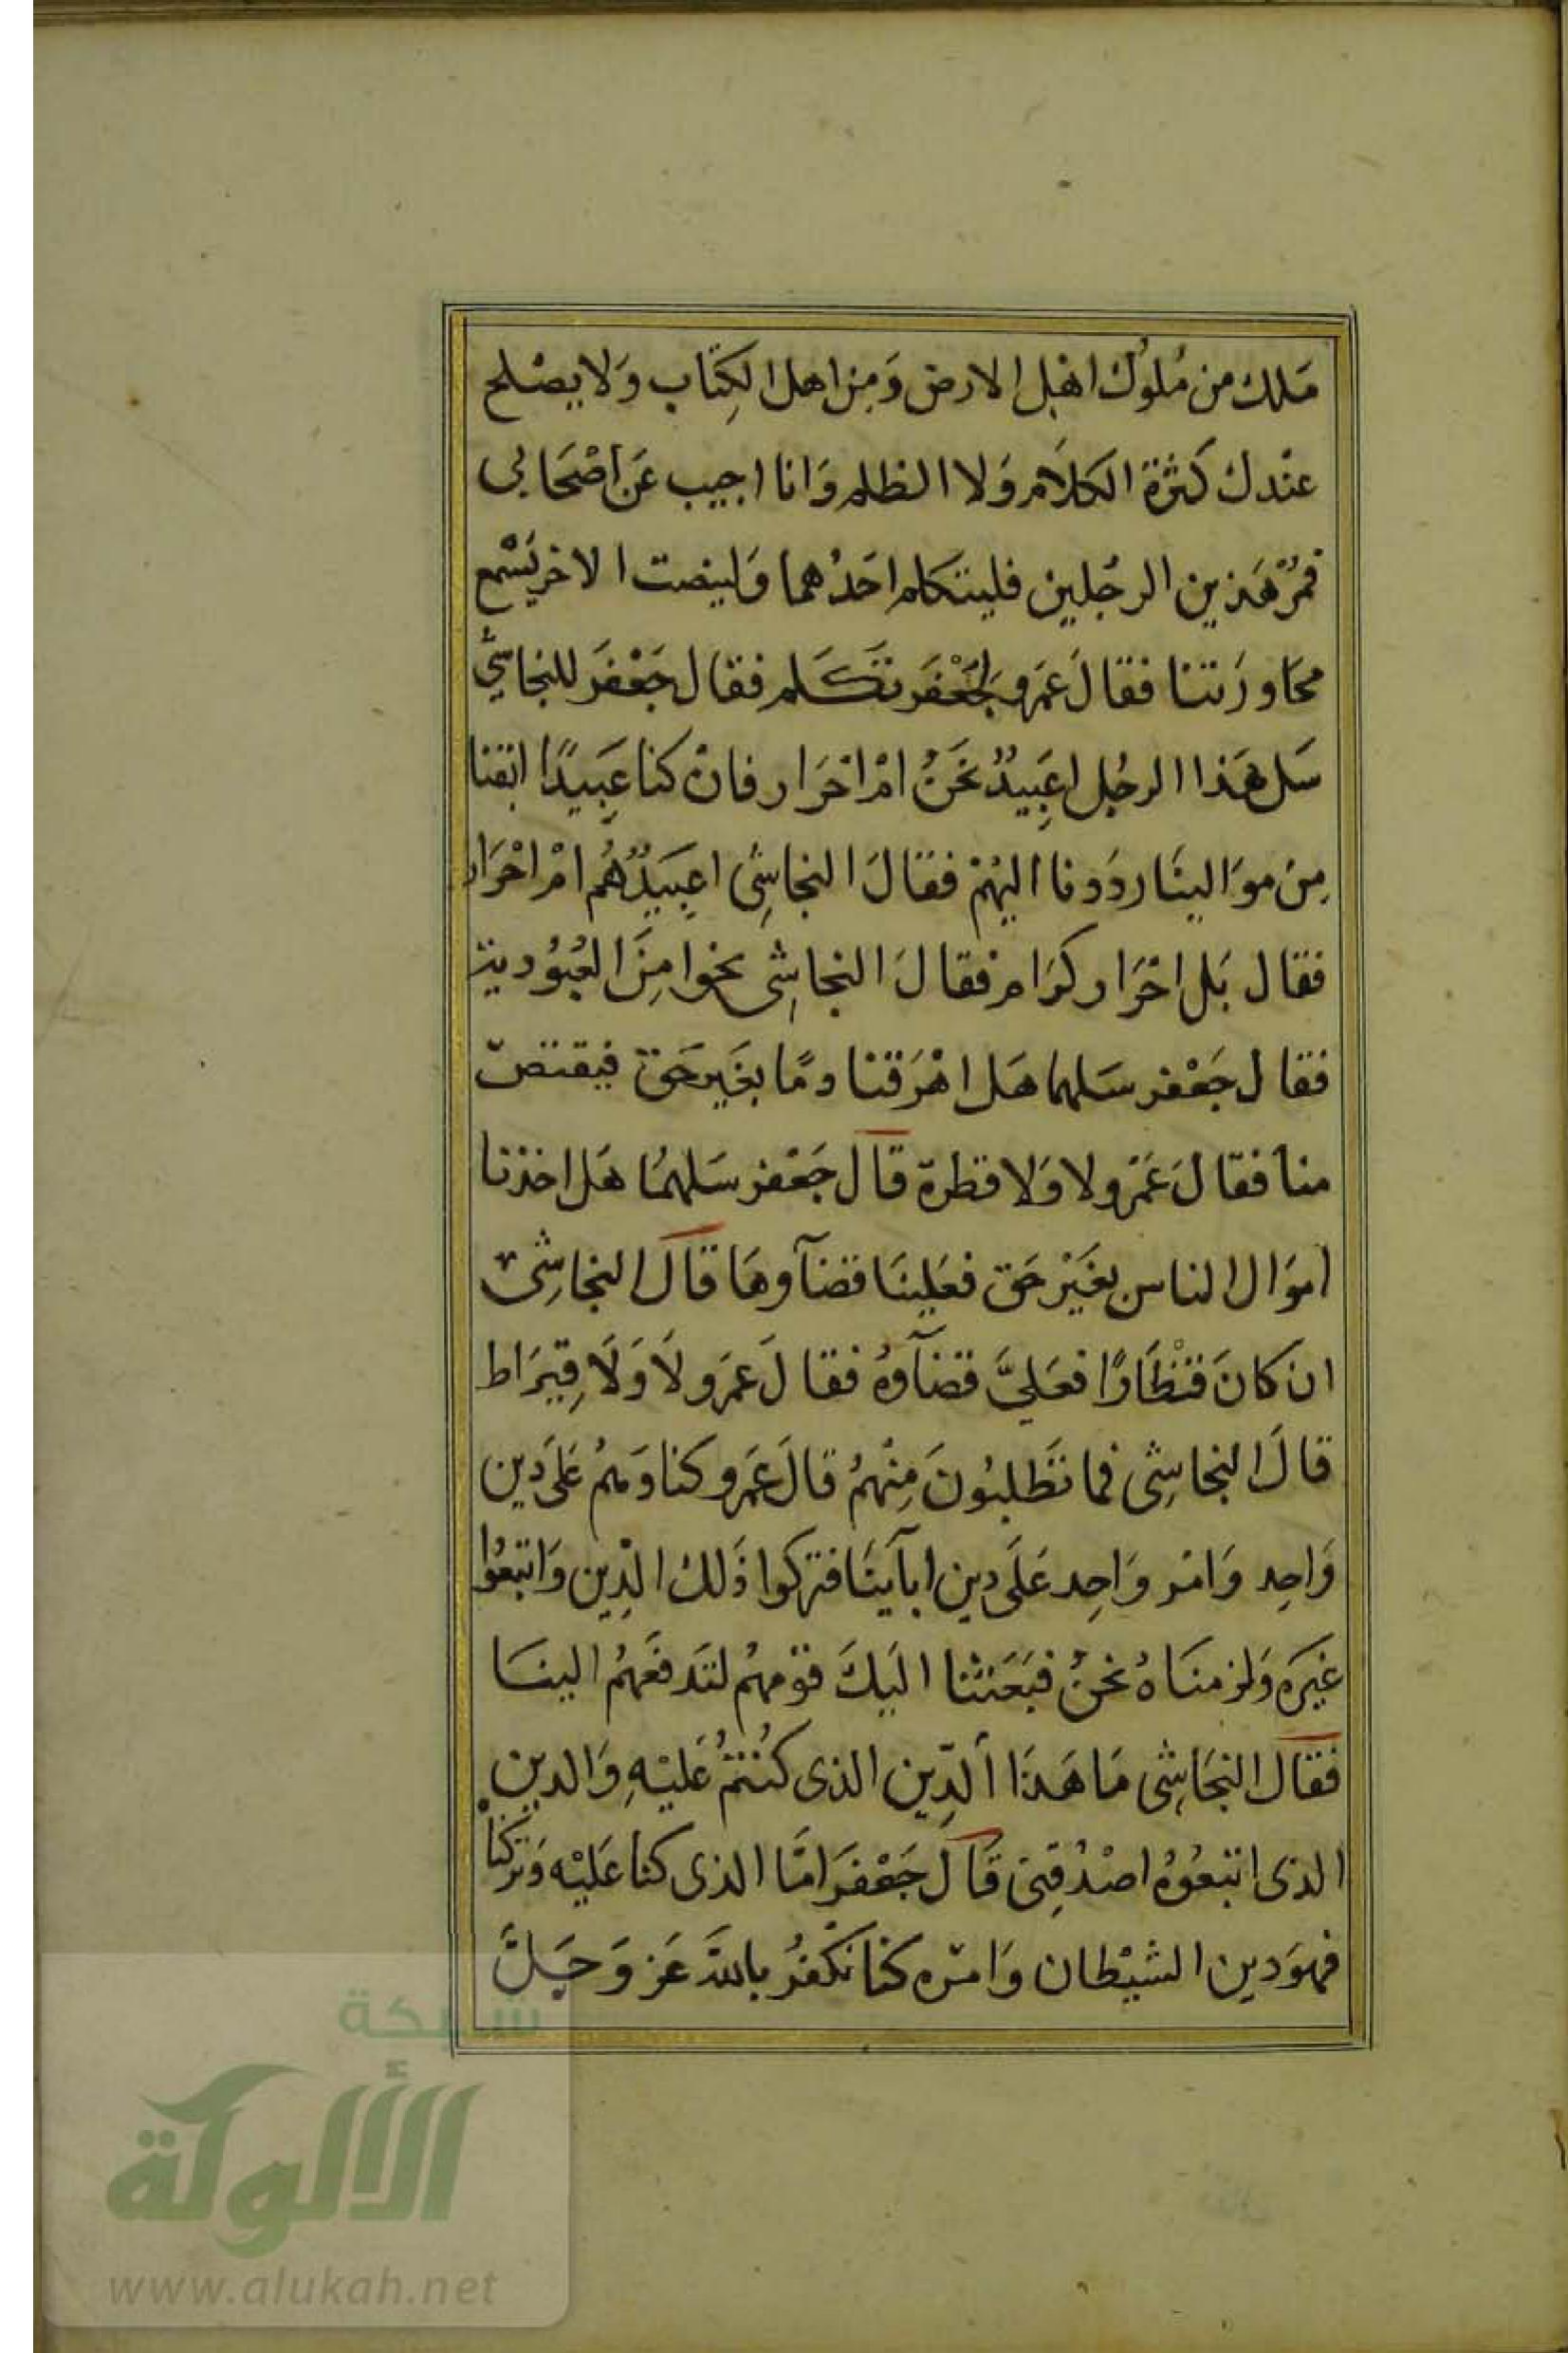 مَلك من مُلوُك اهْل الارض وَمِن اهل الكِتَاب وَلا يصْلح
عنْدك كَثرْة الكلَام وَلا الظلم وَانا اجيب عَن اصْحَابى
فمُرْ هَذين الرجُلين فليتكلم احَدُهما وَلينصت الاخر يَسْمع
محَاورَتنا فقالَ عَمرو لجَعْفَر تَكَلم فقال جَعْفَر للنجاشِي
سَل هَذا الرجُل اعَبِيدٌ نحَنُ امْ احْرَار فانْ كنا عَبِيدًا ابَقنا
مِن موَالينَا ردَدنا اليْهمْ فقالَ النجاشِى اعَبِيَدٌ هُم امْ احْرَار
فقال بَل احْرَار كرَام فقالَ النجاشِى نجَوا مِنَ العُبُودية
فقال جَعْفر سَلهما هَل اهْرَقنا دمًا بغَير حَق فيقتصّ
منا فقالَ عَمْرو لا وَلا قطرة قال جَعْفر سَلهمُا هَل اخذنا
اموَال الناس بغَيْر حَق فعَلينَا قضآوهَا قال النجاشِى
ان كانَ قنْطَارًا فعَليَّ قضآوهُ فقالَ عَمَرو لَا وَلَا قِيرَاط
قالَ النجاشِى فما تَطلبُونَ مِنْهمُ قالَ عَمَرو كنا وَهمُ عَلىَ دِين
وَاحِد وَامْر وَاحِد عَلىَ دِين ابآيَنَا فتركوا ذَلك الدِين وَاتبعُوا
غيَره وَلزمنَاهُ نحنُ فبَعَثنا اليَكَ قوْمهُم لتَدفعَهمُ الينَا
فقال النجَاشِى مَا هَذَا الدِّين الذى كُنْتمُ عَليْهِ وَالدين
الذى اتبعُوهُ اصْدُقِنى قَالَ جَعْفَر امَّا الذى كنا عَليْه وَتركنَا
فهوَ دين الشيْطان وَامْره كنا نَكْفُر بالله عَز وَجَلَّ
شبكة
الألوكة
www.alukah.net